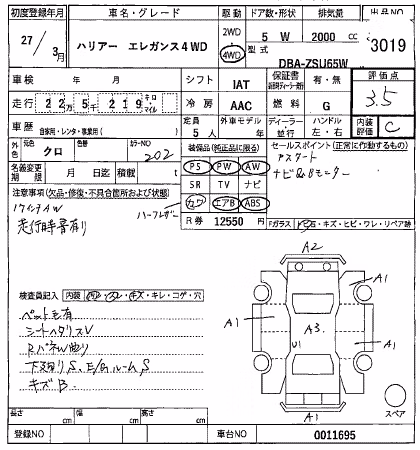 初度登録年月 車名・グレード 駆動 ドア数・形状 排気量 出品NO
27 / 3月 ハリアー エレガンス4WD 2WD 4WD 5 W 2000 cc 3019
型式 DBA-ZSU65W
車検 年 月 シフト IAT 保証書 有・無 評価点
走行 22万5千219 キロ・マイル 冷房 AAC 燃料 G 3.5
車歴 自家用・レンタ・事業用( ) 定員 5人 外車モデル 年 ディーラー 並行 ハンドル 左・右 内装評価 C
外色 元色 クロ 色替 カラーNO 202 装備品(純正品に限る) セールスポイント(正常に作動するもの)
名義変更期限 月 日 積載 t PS PW AW
SR TV ナビ
カワ エアB ABS
ナビ&Bモニター
注意事項(欠品・修復・不具合箇所および状態)
17インチAW ハーフレザー
走行時音有り
R券 12550 円 Fガラス
キズ・ヒビ・ワレ・リペア跡
A2
A1 A1
A1 A3 A1
U1
A1
検査員記入 内装 キズ・キレ・コゲ・穴
ペット毛有
シートヘタリスV
下廻りS、E/GルームS
キズB
スペア
長さ cm 幅 cm 高さ cm
登録NO 車台NO 0011695